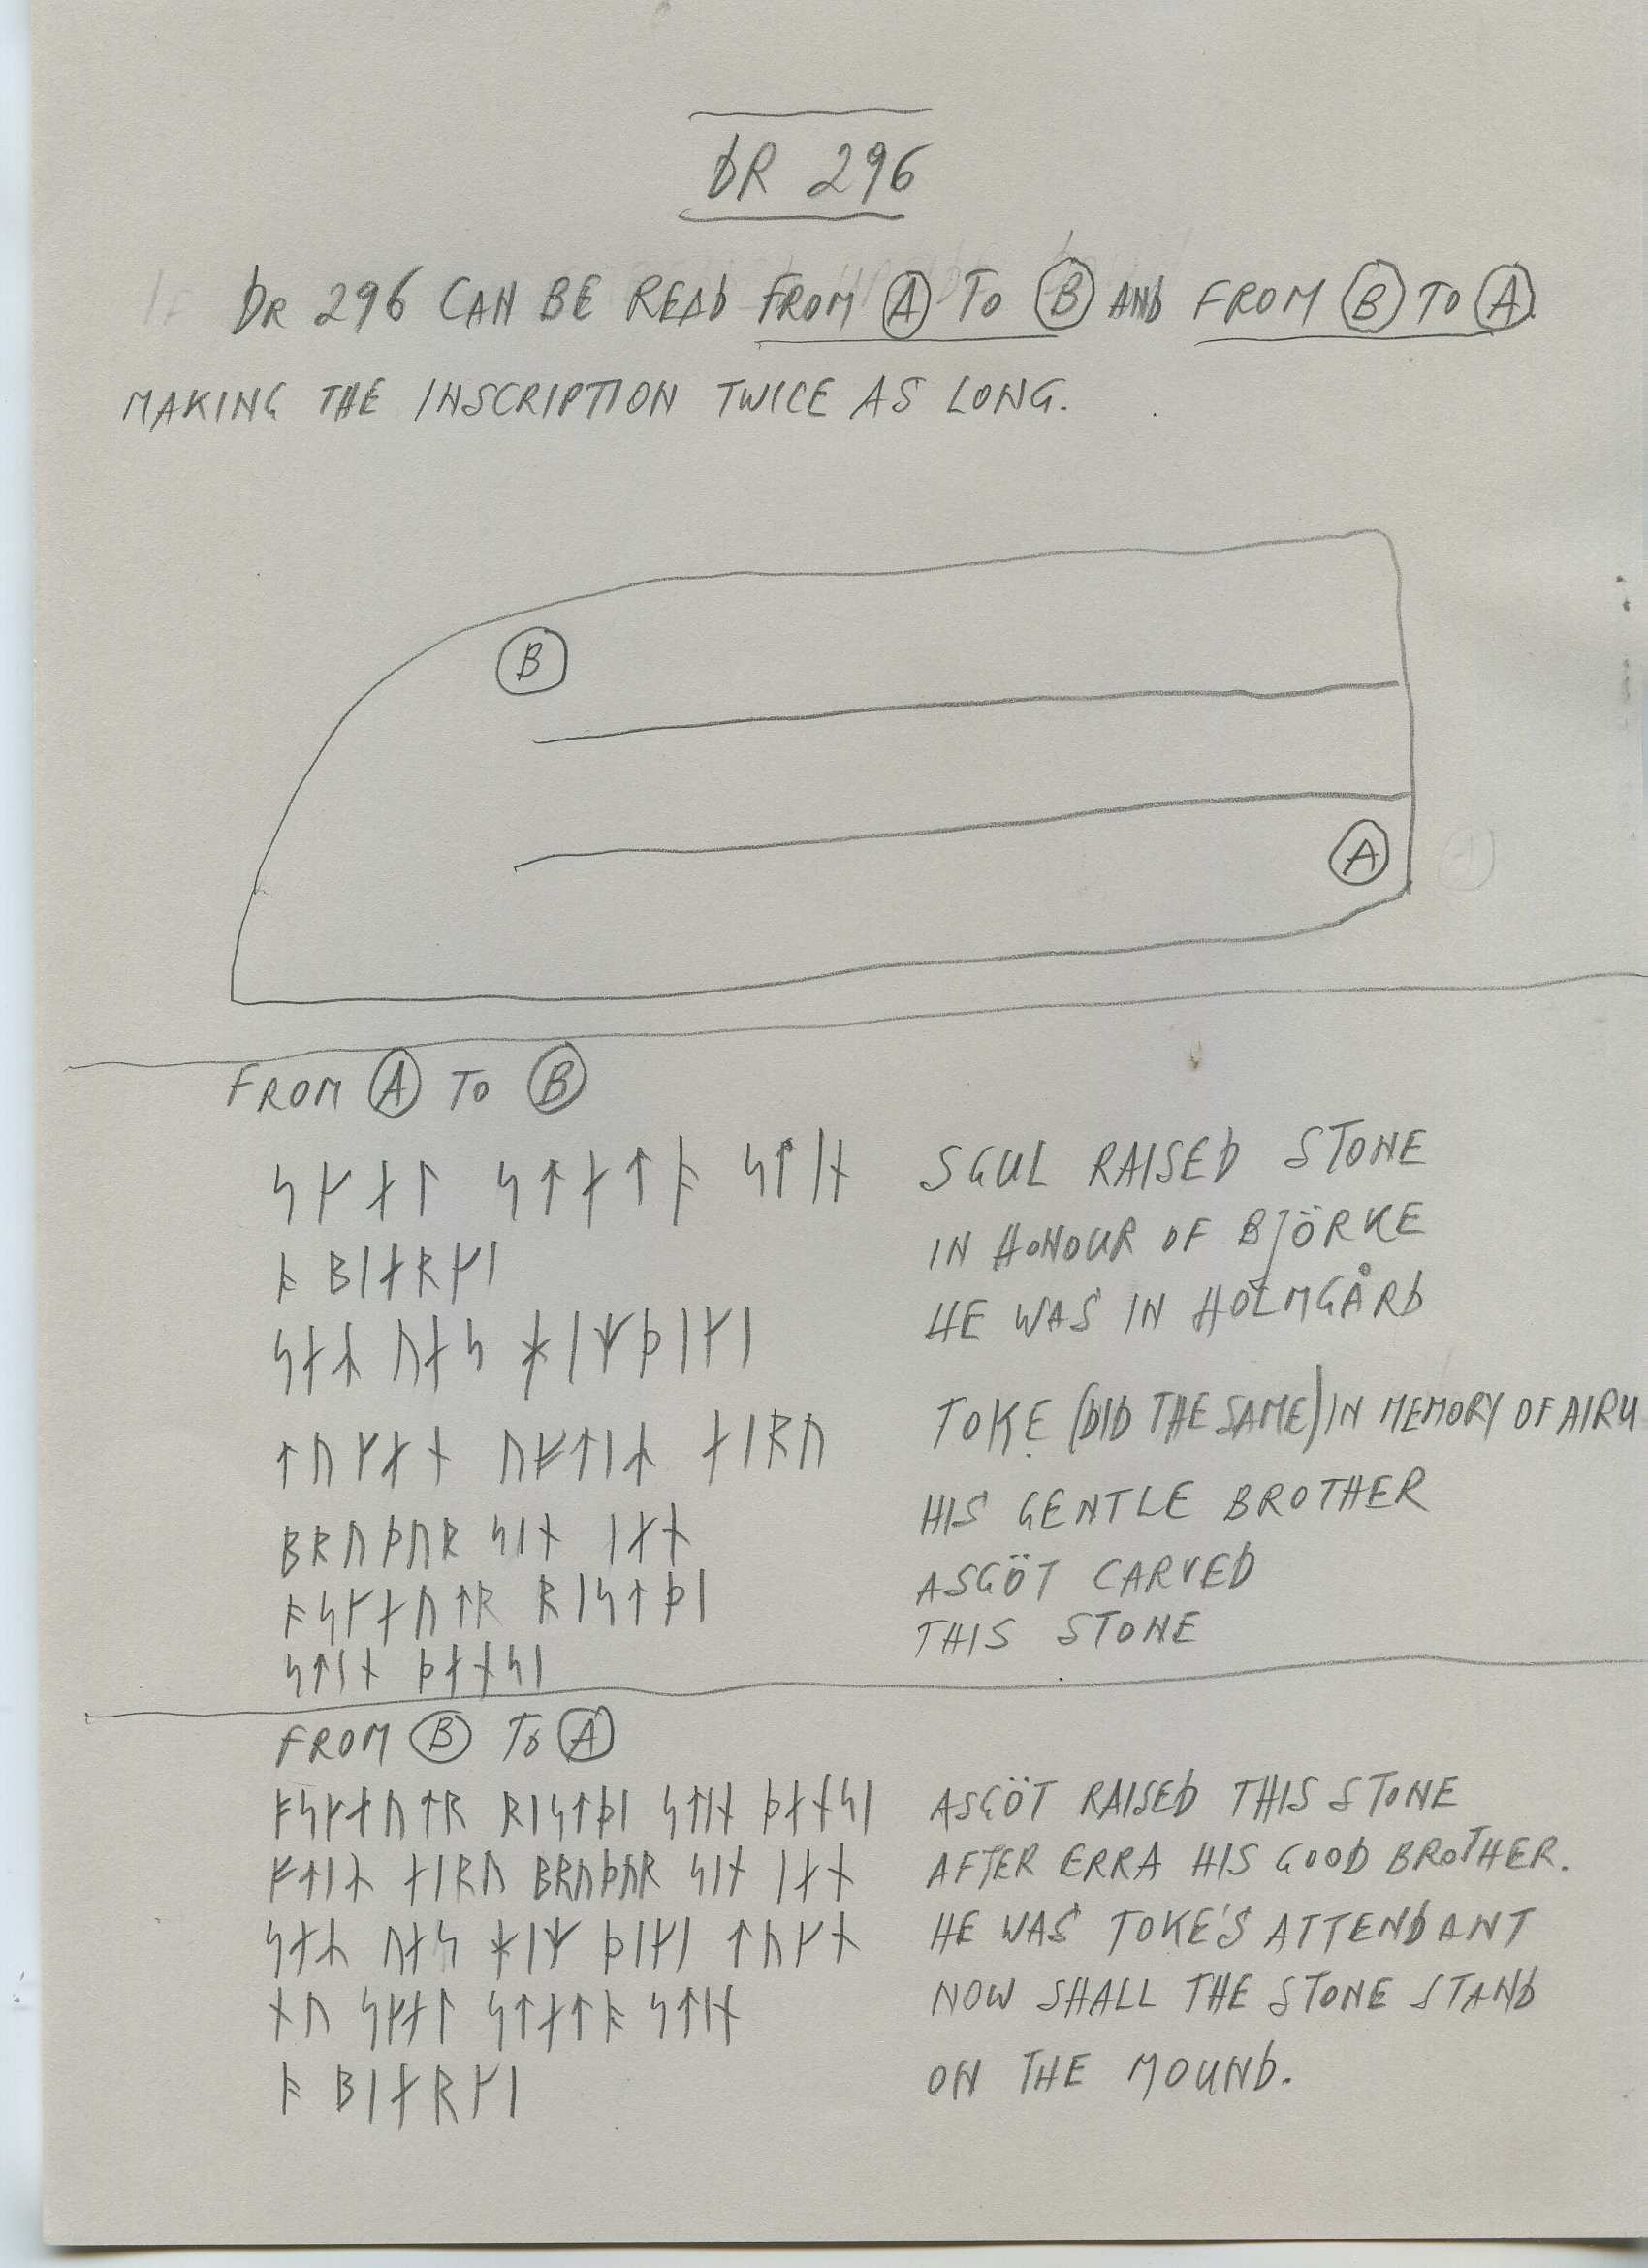 DR 296
DR 296 CAN BE READ FROM A TO B AND FROM B TO A.
MAKING THE INSCRIPTION TWICE AS LONG.
B
A
FROM A TO B
ᛋᚴᛅᛚ ᛋᛏᛅᛏᚬ ᛋᛏᛁᚾ SGUL RAISED STONE
ᚬ ᛒᛁᛅᚱᚴᛁ IN HONOUR OF BJÖRKE
ᛋᛅᛦ ᚢᛅᛋ ᚼᛁᛘᚦᛁᚴᛁ HE WAS IN HOLMGÅRD
ᛏᚢᚴᛅᚾ ᚢᚠᛏᛁᛦ ᛅᛁᚱᚢ TOKE (DID THE SAME) IN MEMORY OF AIRU
ᛒᚱᚢᚦᚢᚱ ᛋᛁᚾ ᛁᛅᚾ HIS GENTLE BROTHER
ᚬᛋᚴᛅᚢᛏᚱ ᚱᛁᛋᛏᚦᛁ ASGÖT CARVED
ᛋᛏᛁᚾ ᚦᛅᚾᛋᛁ THIS STONE
FROM B TO A
ᚬᛋᚴᛅᚢᛏᚱ ᚱᛁᛋᛏᚦᛁ ᛋᛏᛁᚾ ᚦᛅᚾᛋᛁ ASGÖT RAISED THIS STONE
ᚠᛏᛁᛦ ᛅᛁᚱᚢ ᛒᚱᚢᚦᚢᚱ ᛋᛁᚾ ᛁᛅᚾ AFTER ERRA HIS GOOD BROTHER.
ᛋᛅᛦ ᚢᛅᛋ ᚼᛁᛘ ᚦᛁᚴᛁ ᛏᚢᚴᚾ HE WAS TOKE'S ATTENDANT
ᚾᚢ ᛋᚴᛅᛚ ᛋᛏᛅᛏᚬ ᛋᛏᛁᚾ NOW SHALL THE STONE STAND
ᚬ ᛒᛁᛅᚱᚴᛁ ON THE MOUND.